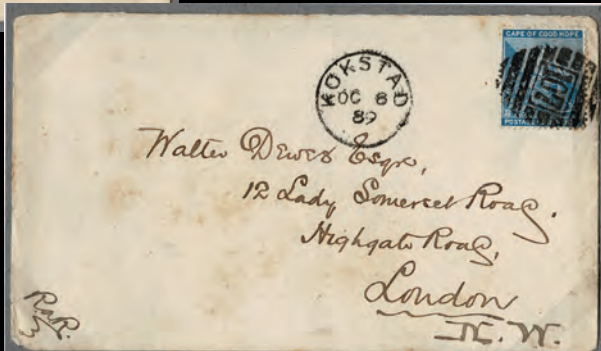 CAPE OF GOOD HOPE
POSTAGE
KOKSTAD
OC 6
89
Walter Dewes Esqre,
12 Lady Somerset Road.
Highgate Road,
London
N. W.